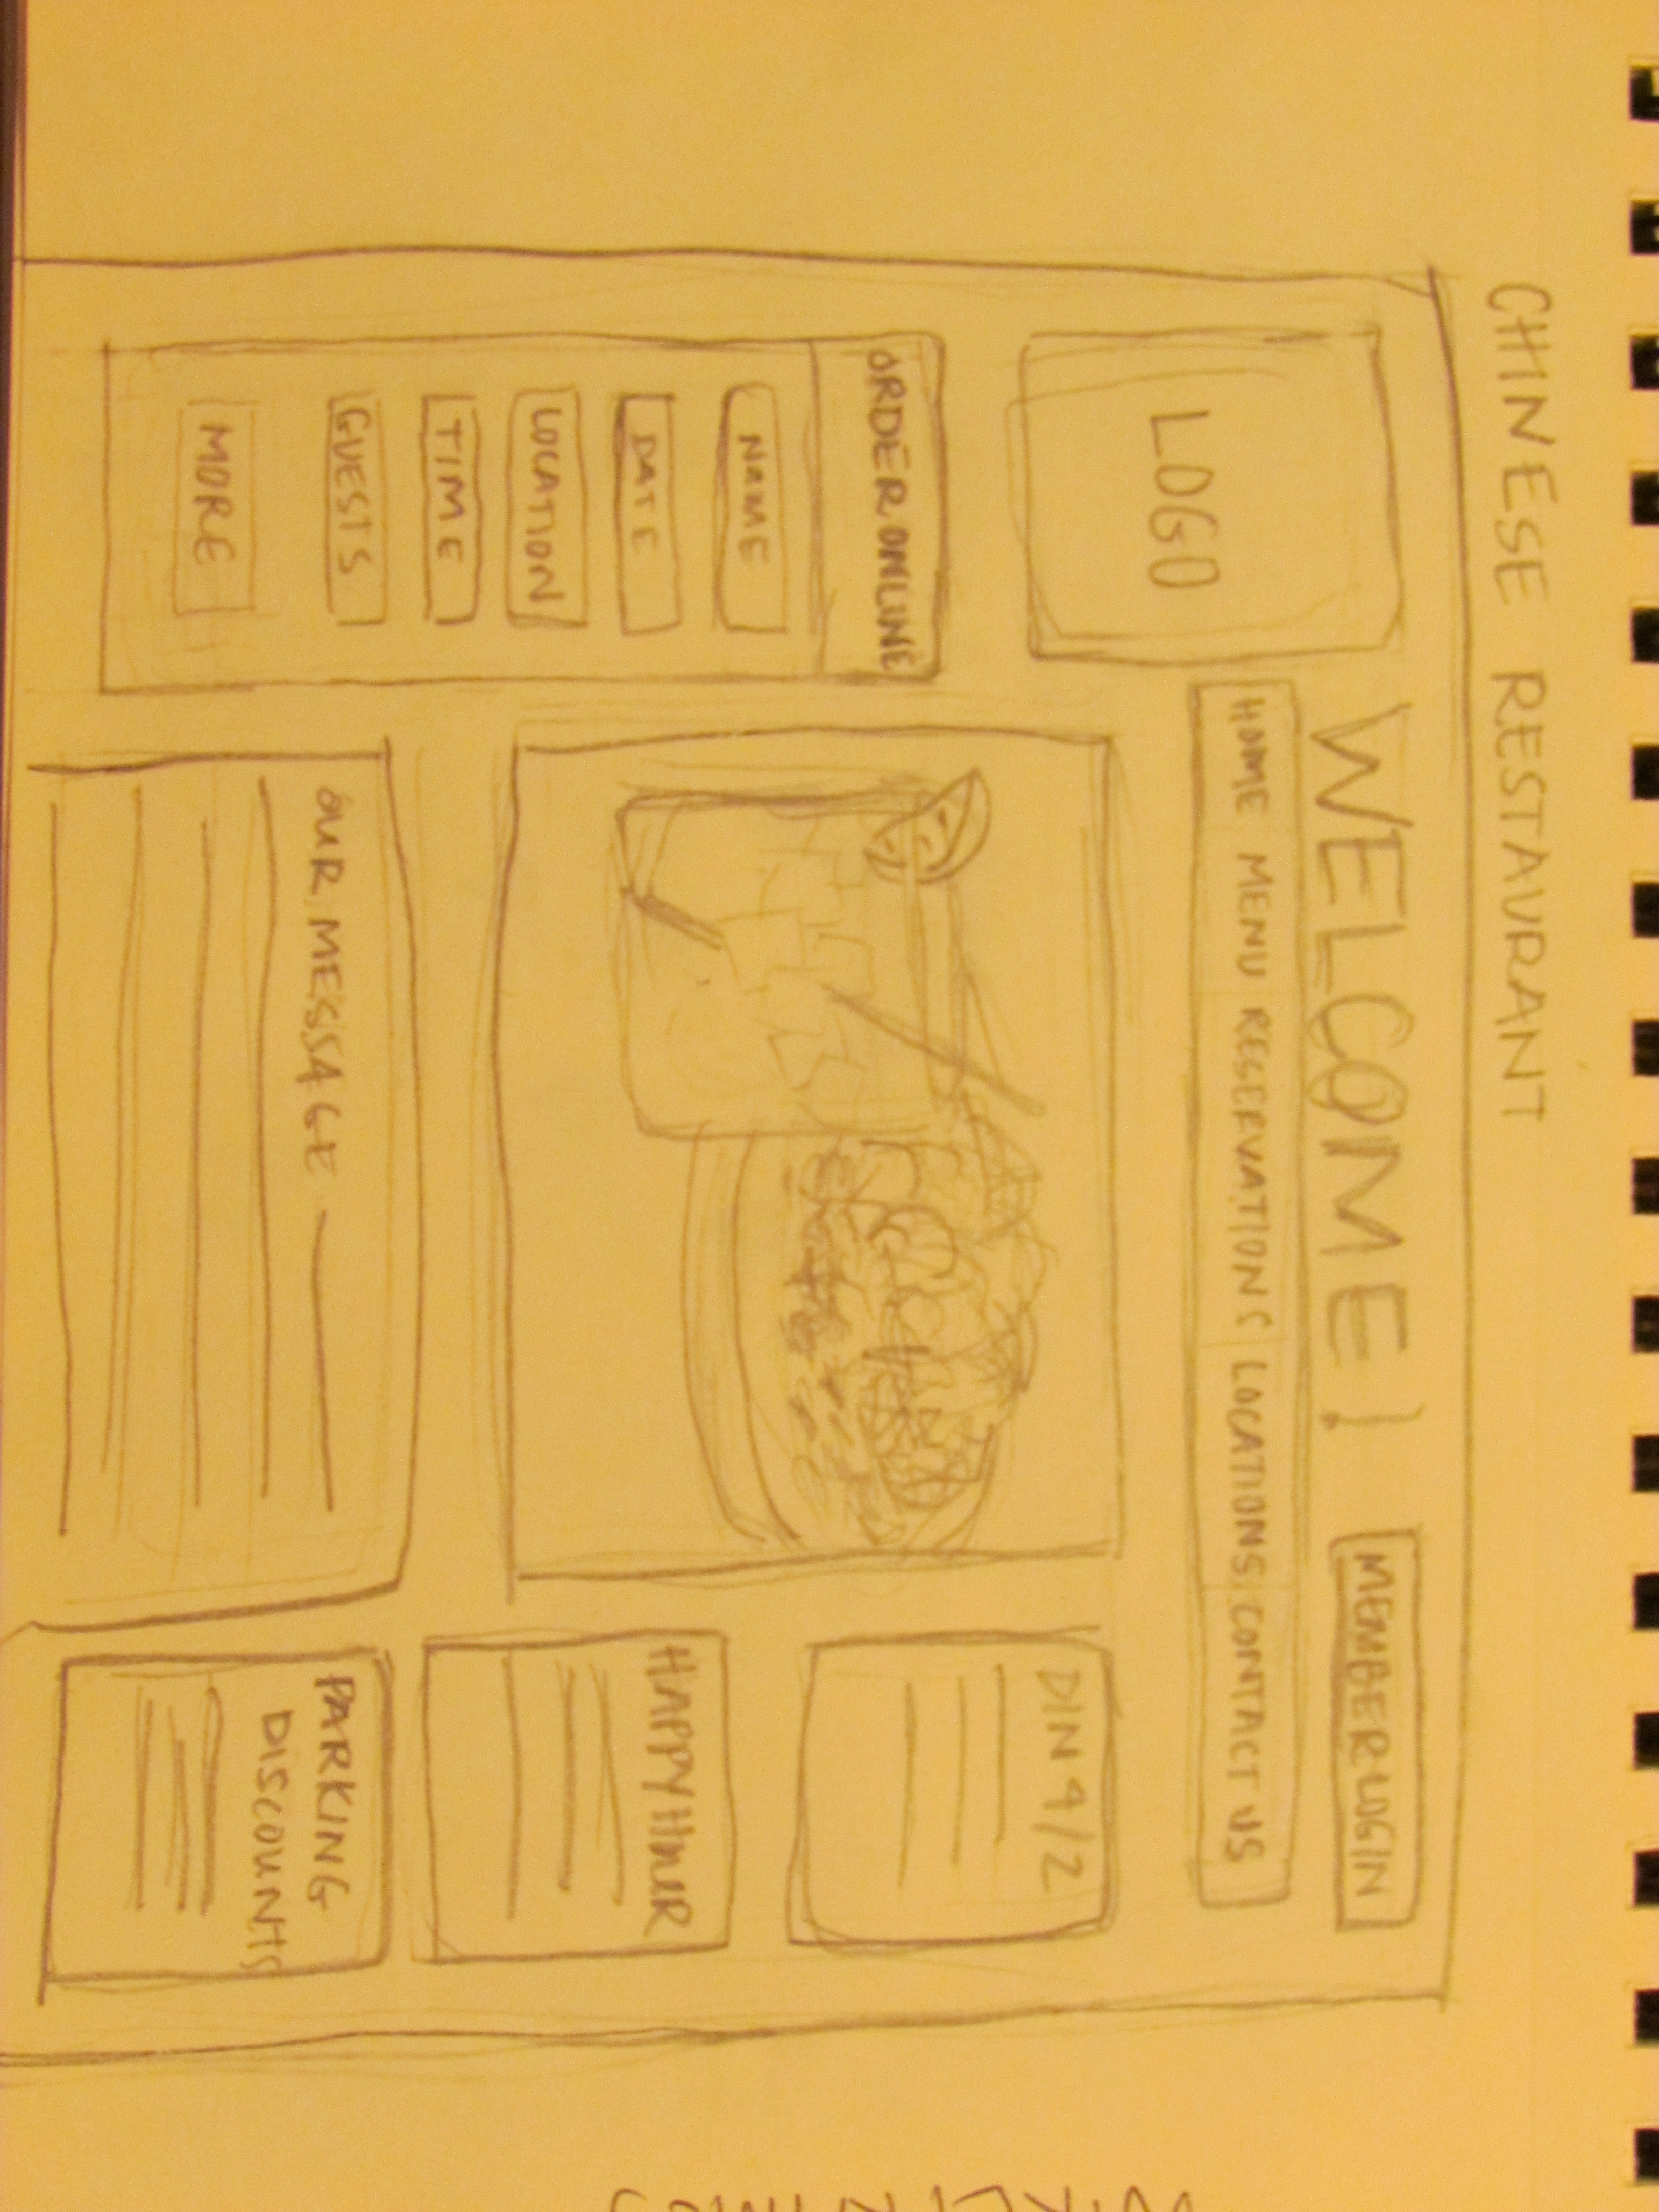 CHINESE RESTAURANT
WELCOME!
MEMBER LOGIN
LOGO
HOME MENU RESERVATIONS LOCATIONS CONTACT US
ORDER ONLINE
NAME
DATE
LOCATION
TIME
GUESTS
MORE
OUR MESSAGE
DIN 4/2
HAPPY HOUR
PARKING
DISCOUNTS